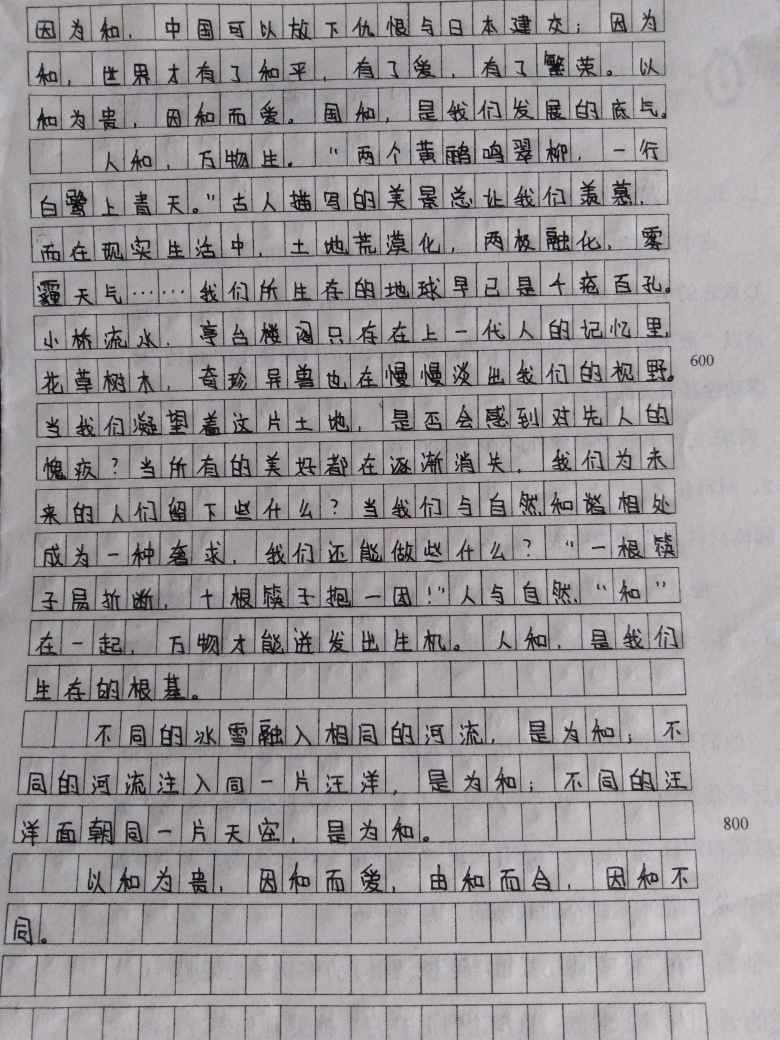 因为和，中国可以放下仇恨与日本建交；因为
和，世界才有了和平，有了爱，有了繁荣。以
和为贵，因和而爱。国和，是我们发展的底气。
人和，万物生。“两个黄鹂鸣翠柳，一行
白鹭上青天。”古人描写的美景总让我们羡慕，
而在现实生活中，土地荒漠化，两极融化，雾
霾天气……我们所生存的地球早已是千疮百孔。
小桥流水，亭台楼阁只存在上一代人的记忆里，
花草树木，奇珍异兽也在慢慢淡出我们的视野。
600
当我们凝望着这片土地，是否会感到对先人的
愧疚？当所有的美好都在逐渐消失，我们为未
来的人们留下些什么？当我们与自然和谐相处
成为一种奢求，我们还能做些什么？“一根筷
子易折断，十根筷子抱一团！”人与自然“和”
在一起，万物才能迸发出生机。人和，是我们
生存的根基。
不同的冰雪融入相同的河流，是为和；不
同的河流注入同一片汪洋，是为和；不同的汪
洋面朝同一片天空，是为和。
800
以和为贵，因和而爱，由和而合，因和不
同。